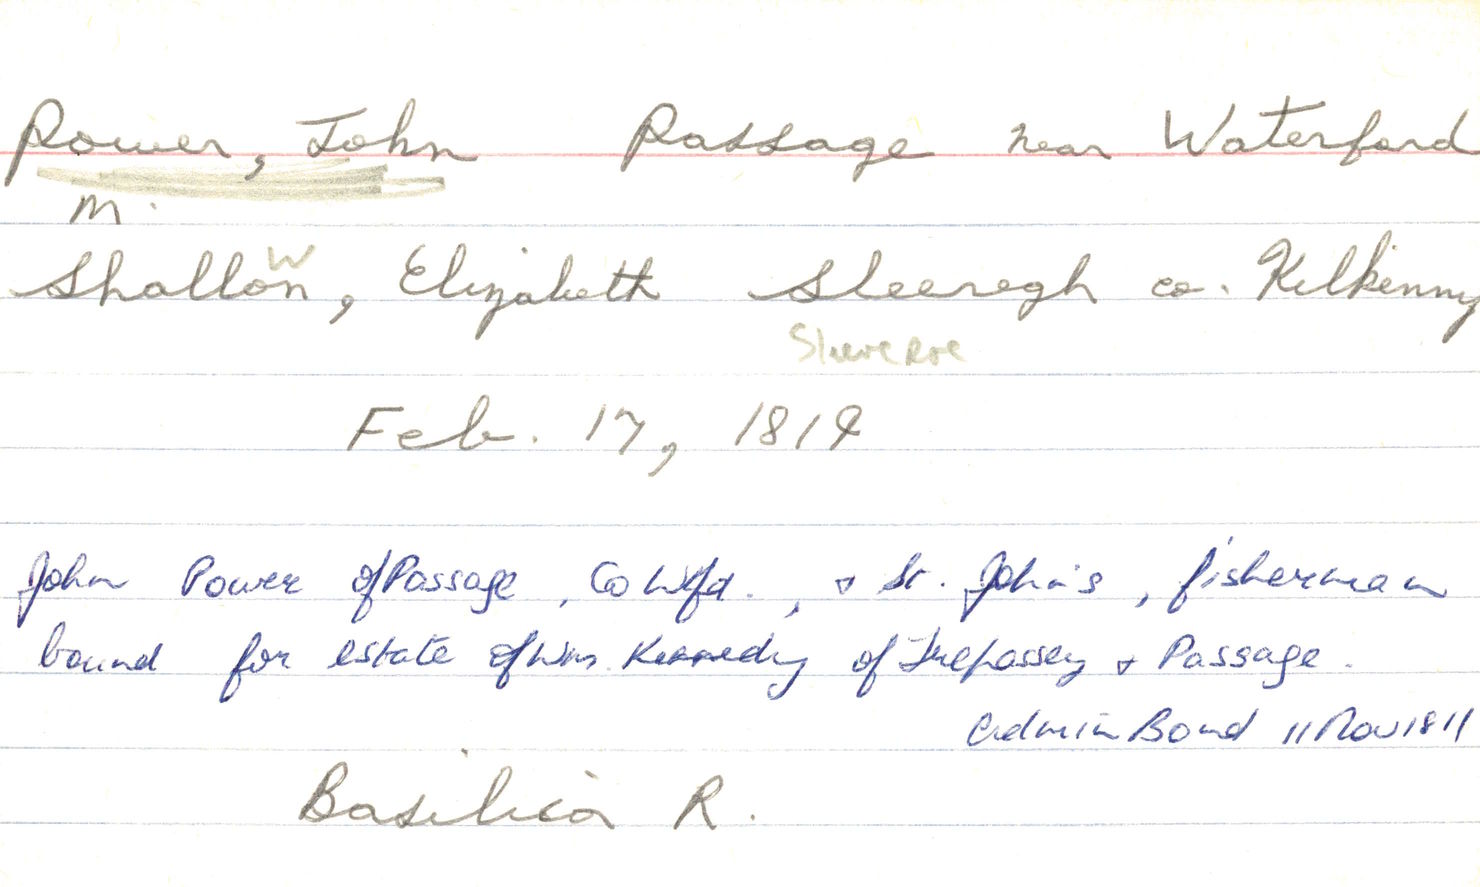 Power, John Passage near Waterford
m.
Shallon, Elizabeth Sleeregh co. Kilkenny
W
Slieverue
Feb. 17, 1814
John Power of Passage, Co Wfd., & St. John's, fisherman
bound for estate of Wm. Kennedy of Trepassey & Passage.
Admin Bond 11 Nov 1811
Basilica R.